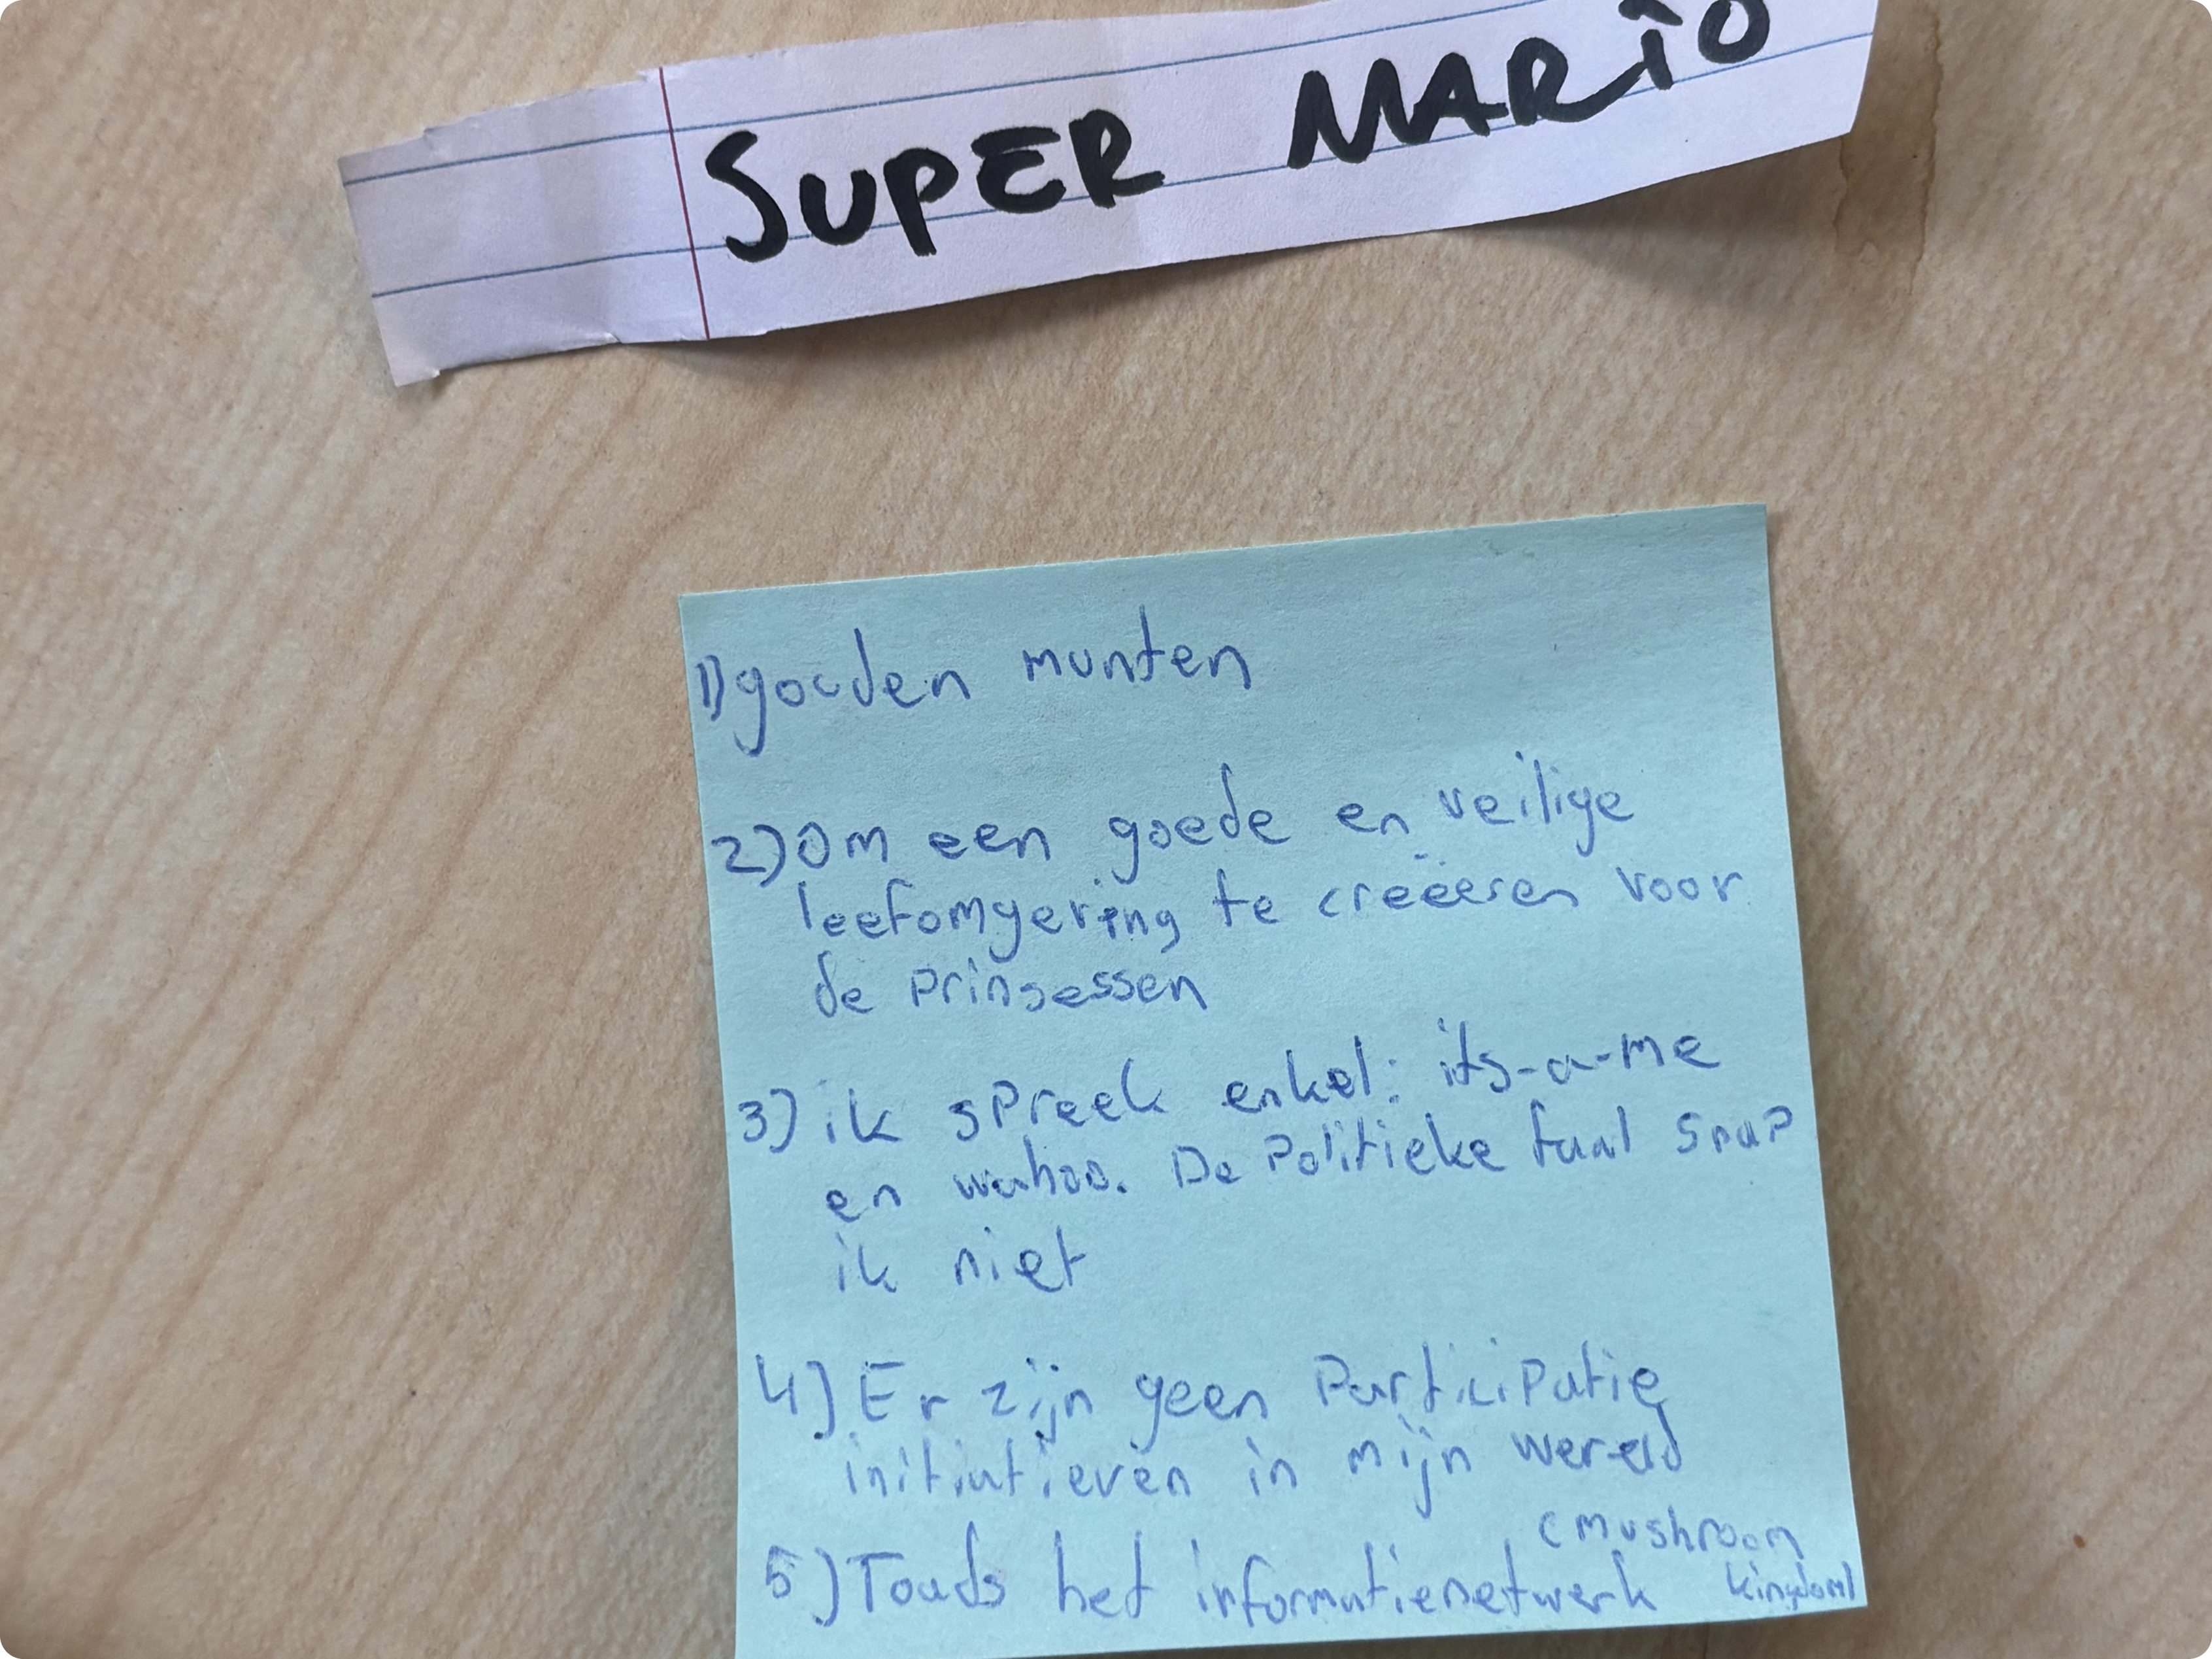 SUPER MARIO
1) gouden munten
2) Om een goede en veilige
leefomgeving te creëeren voor
de prinsessen
3) ik spreek enkel: its-a-me
en wahoo. De Politieke taal snap
ik niet
4) Er zijn geen Participatie
initiatieven in mijn wereld
(mushroom
5) Toads het informatienetwerk kingdom)